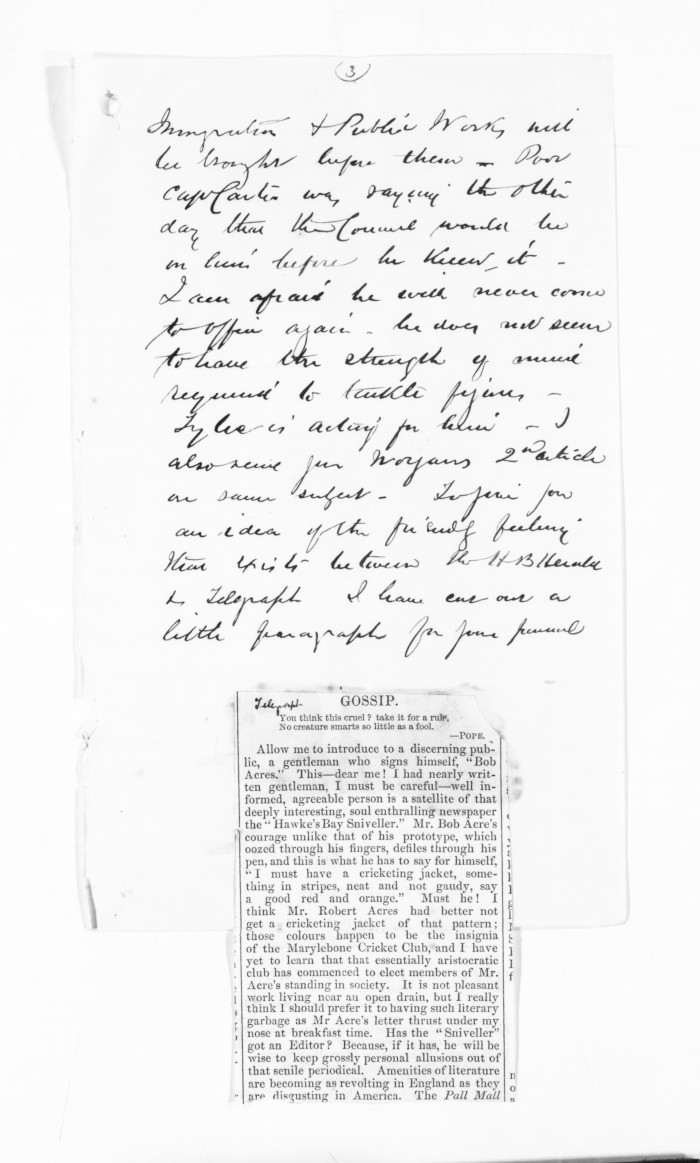 3
Immigration & Public Works will
be brought before them – Poor
Capt Carter was saying the other
day that the Council would be
on him before he knew it –
I am afraid he will never come
to Office again – he does not seem
to have the strength of mind
required to tackle figures –
is acting for him – I
also send you 2nd article
on same subject – To give you
an idea of the friendly feeling
that exists between the H B Herald
& Telegraph I have cut out a
little paragraph for your perusal
Telegraph
GOSSIP.
You think this cruel? take it for a rule,
No creature smarts so little as a fool.
—POPE.
Allow me to introduce to a discerning pub-
lic, a gentleman who signs himself, "Bob
Acres." This—dear me! I had nearly writ-
ten gentleman, I must be careful—well in-
formed, agreeable person is a satellite of that
deeply interesting, soul enthralling newspaper
the "Hawke's Bay Sniveller." Mr. Bob Acre's
courage unlike that of his prototype, which
oozed through his fingers, defiles through his
pen, and this is what he has to say for himself,
"I must have a cricketing jacket, some-
thing in stripes, neat and not gaudy, say
a good red and orange." Must he! I
think Mr. Robert Acres had better not
get a cricketing jacket of that pattern;
those colours happen to be the insignia
of the Marylebone Cricket Club, and I have
yet to learn that that essentially aristocratic
club has commenced to elect members of Mr.
Acre's standing in society. It is not pleasant
work living near an open drain, but I really
think I should prefer it to having such literary
garbage as Mr Acre's letter thrust under my
nose at breakfast time. Has the "Sniveller"
got an Editor? Because, if it has, he will be
wise to keep grossly personal allusions out of
that senile periodical. Amenities of literature
are becoming as revolting in England as they
are disgusting in America. The Pall Mall